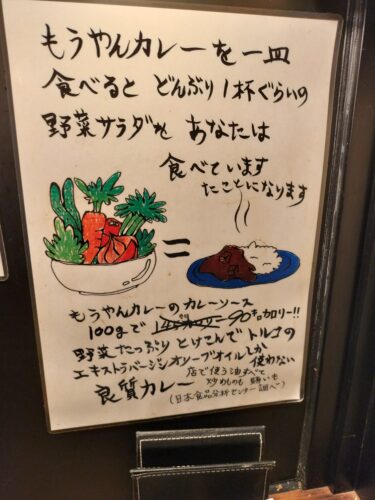 もうやんカレーを一皿
食べると どんぶり1杯ぐらいの
野菜サラダを あなたは
食べています
たことになります
=
もうやんカレーのカレーソース
100gで 90キロカロリー!!
野菜たっぷり とけこんで トルコの
エキストラバージンオリーブオイルしか 使わない
店で使う油すべて
良質カレー 炒めものも 賄いも
(日本食品分析センター調べ)